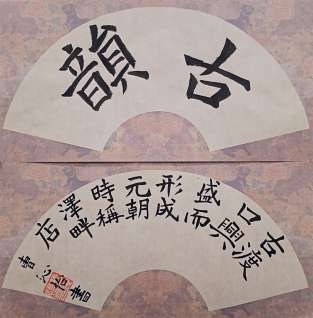 古韻
古渡
口興
盛而
形成
元朝
時稱
澤畔
店
曹
書